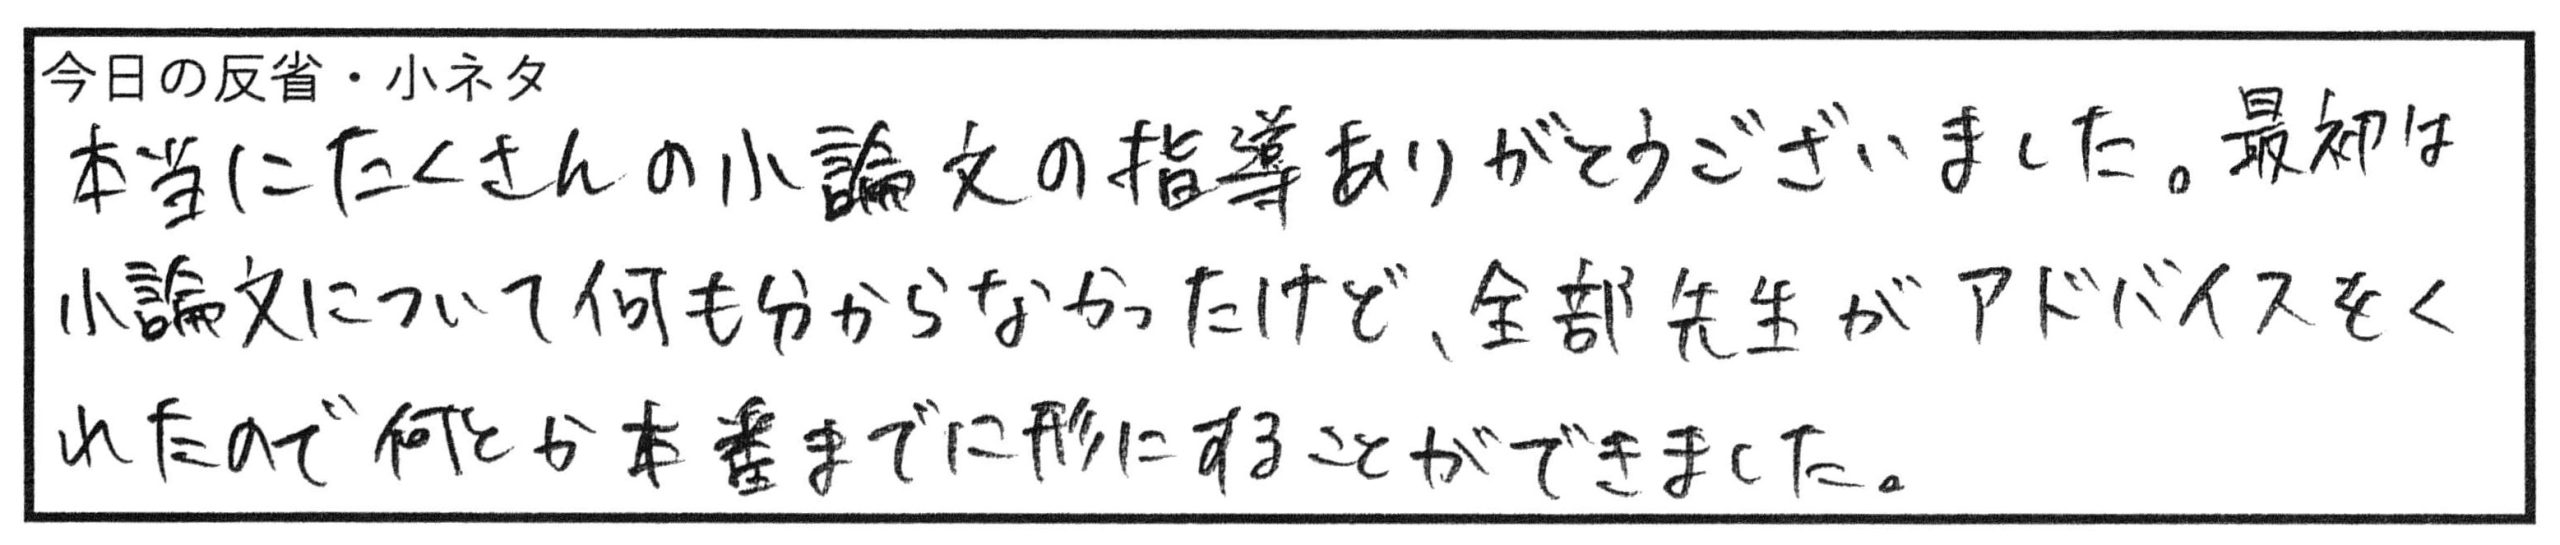 今日の反省・小ネタ
本当にたくさんの小論文の指導ありがとうございました。最初は
小論文について何も分からなかったけど、全部先生がアドバイスをく
れたので何とか本番までに形にすることができました。